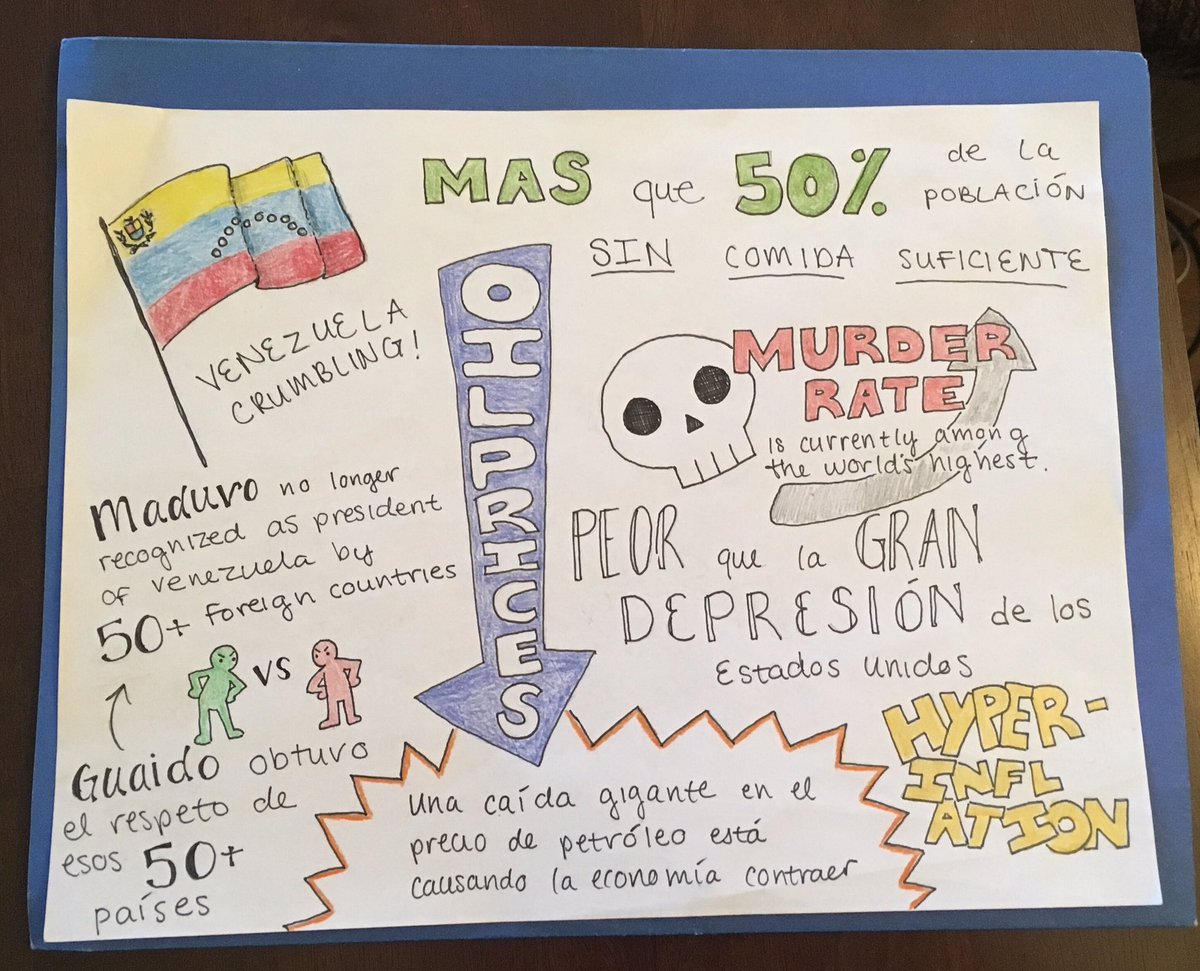 MAS que 50% de la
POBLACIÓN
SIN COMIDA SUFICIENTE
VENEZUELA
CRUMBLING!
OIL PRICES
MURDER
RATE
is currently among
the world's highest.
Maduro no longer
recognized as president
of venezuela by
50+ foreign countries
VS
Guaido obtuvo
el respeto de
esos 50+
países
PEOR que la GRAN
DEPRESIÓN de los
Estados Unidos
HYPER-
INFL
ATION
una caída gigante en el
precio de petróleo está
causando la economía contraer